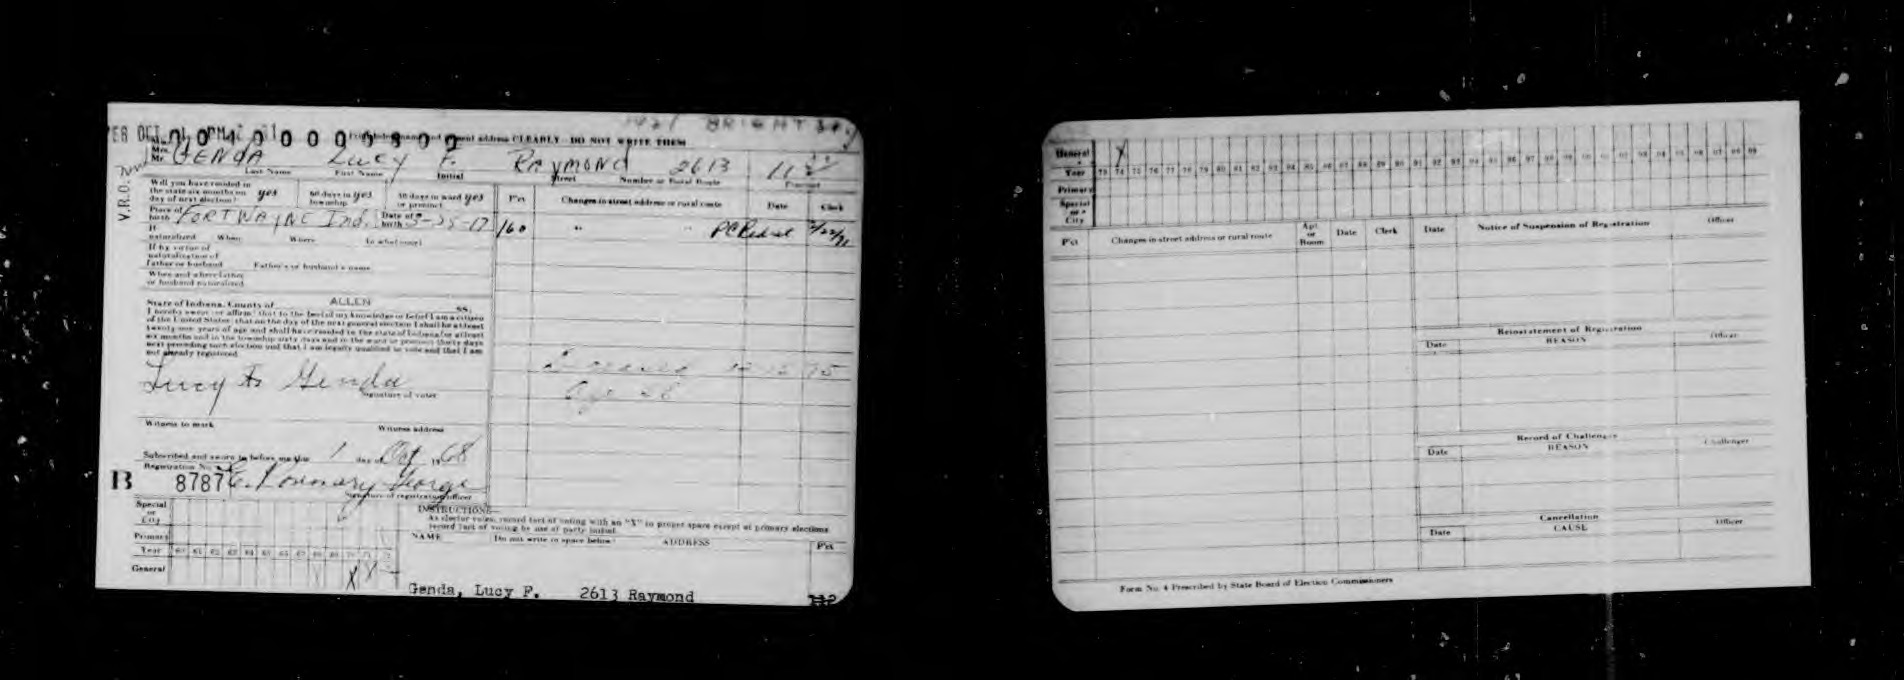 FEB OCT 1 PM
0 0 4 0 0 0 0 8 0 0
Print below name and present address CLEARLY - DO NOT WRITE THEM
V.R.O.
Mrs.
Mr. GENDA Lucy F. RAYMOND 2613
Last Name First Name Initial Street Number or Rural Route Precinct
Will you have resided in
the state six months on
day of next election? yes
60 days in
township yes
30 days in ward
or precinct yes
Pct Changes in street address or rural route Date Clerk
Place of
birth FORT WAYNE Ind.
Date of
birth
160 " "
If
naturalized When Where In what court
If by virtue of
naturalization of
father or husband Father's or husband's name
When and where father
or husband naturalized
State of Indiana, County of ALLEN SS:
I hereby swear (or affirm) that to the best of my knowledge or belief I am a citizen
of the United States; that on the day of the next general election I shall be at least
twenty-one years of age and shall have resided in the state of Indiana for at least
six months and in the township sixty days and in the ward or precinct thirty days
next preceding such election and that I am legally qualified to vote and that I am
not already registered
Lucy F. Genda
Signature of voter
Witness to mark Witness address
Subscribed and sworn to before me this 1 day of Oct 1968
Registration No.
B 8787 Rosemary George
Signature of registration officer
Special
or
City
Primary
Year 60 61 62 63 64 65 66 67 68 69 70 71 72
General X X
INSTRUCTIONS—
As elector votes, record fact of voting with an "X" in proper space except at primary elections
record fact of voting by use of party initial.
NAME Do not write in space below! ADDRESS Pct
Genda, Lucy F. 2613 Raymond
General X
Year 73 74 75 76 77 78 79 80 81 82 83 84 85 86 87 88 89 90 91 92 93 94 95 96 97 98 99
Primary
Special
or
City
Pct Changes in street address or rural route Apt. or Room Date Clerk
Date Notice of Suspension of Registration Officer
Reinstatement of Registration
Date REASON Officer
Record of Challenges
Date REASON Challenger
Cancellation
Date CAUSE Officer
Form No. 4 Prescribed by State Board of Election Commissioners